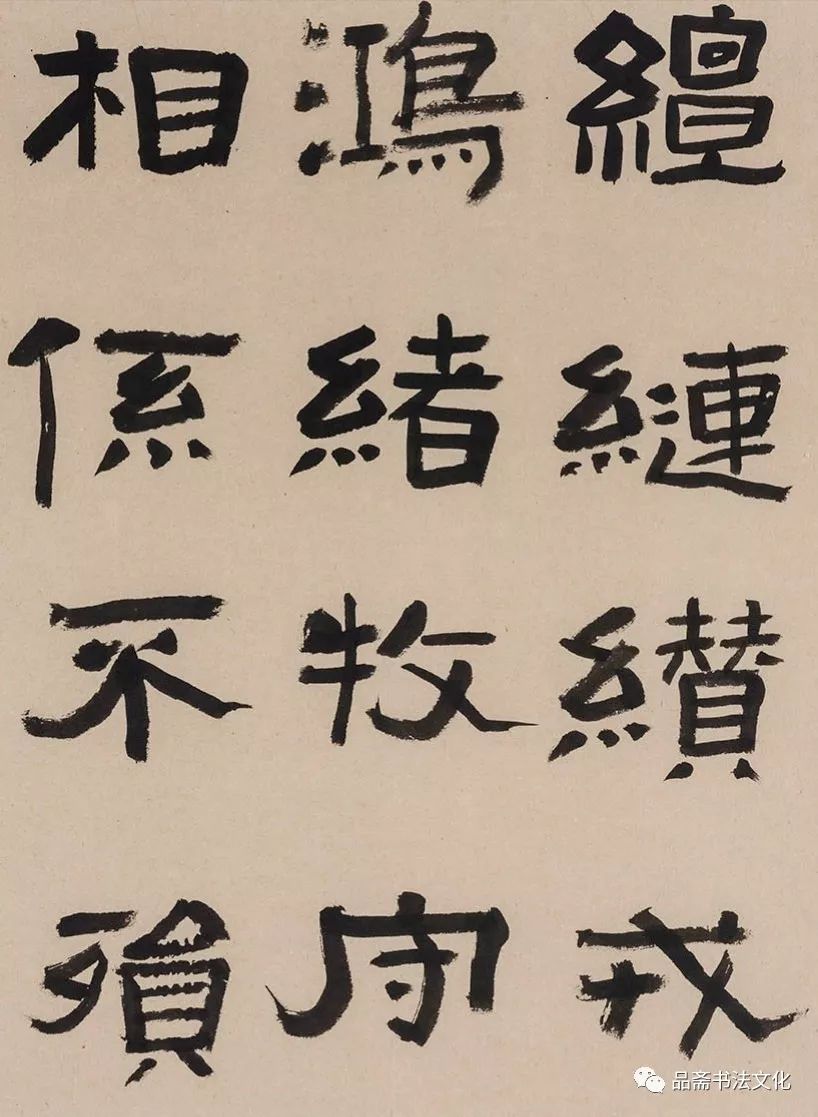 繵縺纉戎
鴻緒牧守
相係不殞
品斋书法文化